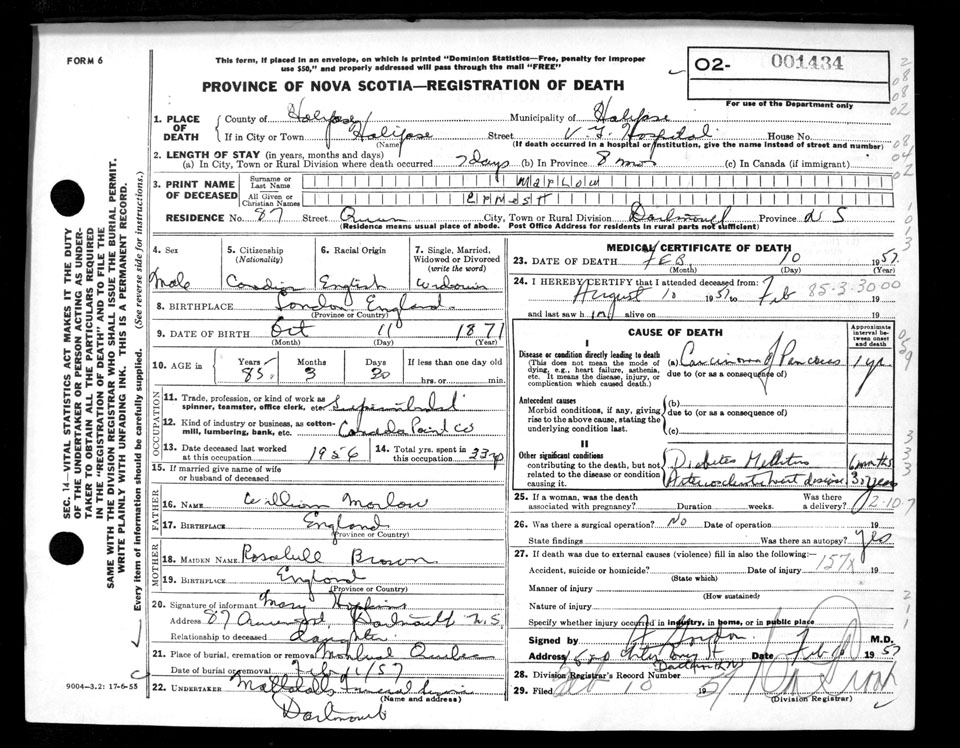 FORM 6
This form, if placed in an envelope, on which is printed "Dominion Statistics—Free, penalty for improper
use $50," and properly addressed will pass through the mail "FREE"
PROVINCE OF NOVA SCOTIA—REGISTRATION OF DEATH
O2- 001434
For use of the Department only
1. PLACE OF DEATH
County of Halifax Municipality of Halifax
If in City or Town Halifax Street V. G. Hospital House No.
(Name) (If death occurred in a hospital or institution, give the name instead of street and number)
2. LENGTH OF STAY (in years, months and days)
(a) In City, Town or Rural Division where death occurred 7 days (b) In Province 8 mos (c) In Canada (if immigrant)
3. PRINT NAME OF DECEASED
Surname or Last Name Marlow
All Given or Christian Names Ernest
RESIDENCE No. 87 Street Queen City, Town or Rural Division Dartmouth Province N S
(Residence means usual place of abode. Post Office Address for residents in rural parts not sufficient)
4. Sex Male
5. Citizenship (Nationality) Canadian
6. Racial Origin English
7. Single, Married, Widowed or Divorced (write the word) widower
8. BIRTHPLACE London England
(Province or Country)
9. DATE OF BIRTH Oct 11 1871
(Month) (Day) (Year)
10. AGE in Years 85 Months 3 Days 30 If less than one day old
hrs. or min.
OCCUPATION
11. Trade, profession, or kind of work as spinner, teamster, office clerk, etc.
12. Kind of industry or business, as cotton-mill, lumbering, bank, etc. Canada Paint Co
13. Date deceased last worked at this occupation 1956
14. Total yrs. spent in this occupation 33 yr
15. If married give name of wife or husband of deceased
FATHER
16. NAME William Marlow
17. BIRTHPLACE England
(Province or Country)
MOTHER
18. MAIDEN NAME Rosabell Brown
19. BIRTHPLACE England
(Province or Country)
20. Signature of informant Mary Hopkins
Address 87 Dartmouth N.S.
Relationship to deceased daughter
21. Place of burial, cremation or removal Montreal Quebec
Date of burial or removal
22. UNDERTAKER Mattatall's Funeral
(Name and address)
Dartmouth
9004-3.2: 17-6-55
MEDICAL CERTIFICATE OF DEATH
23. DATE OF DEATH FEB 10 1957
(Month) (Day) (Year)
24. I HEREBY CERTIFY that I attended deceased from:
August 10 1956 to Feb 85-3-30-00 19
and last saw him alive on 19
CAUSE OF DEATH
Approximate interval between onset and death
I
Disease or condition directly leading to death
(This does not mean the mode of dying, e.g., heart failure, asthenia, etc. It means the disease, injury, or complication which caused death.)
(a) Carcinoma of Pancreas 1 yr
due to (or as a consequence of)
Antecedent causes
Morbid conditions, if any, giving rise to the above cause, stating the underlying condition last.
(b)
due to (or as a consequence of)
(c)
II
Other significant conditions contributing to the death, but not related to the disease or condition causing it.
Diabetes Mellitus 6 months
heart disease 3 years
25. If a woman, was the death associated with pregnancy? Duration weeks. Was there a delivery?
26. Was there a surgical operation? No Date of operation 19
State findings Was there an autopsy? Yes
27. If death was due to external causes (violence) fill in also the following:
Accident, suicide or homicide? Date of injury 157x 19
(State which)
Manner of injury
(How sustained)
Nature of injury
Specify whether injury occurred in industry, in home, or in public place
Signed by Gordon M.D.
Address Date Feb 1957
28. Division Registrar's Record Number
29. Filed Feb 10 1957
(Division Registrar)
SEC. 14—VITAL STATISTICS ACT MAKES IT THE DUTY
OF THE UNDERTAKER OR PERSON ACTING AS UNDER-
TAKER TO OBTAIN ALL THE PARTICULARS REQUIRED
IN THE "REGISTRATION OF DEATH" AND TO FILE THE
SAME WITH THE DIVISION REGISTRAR WHO SHALL ISSUE THE BURIAL PERMIT.
WRITE PLAINLY WITH UNFADING INK. THIS IS A PERMANENT RECORD.
Every item of information should be carefully supplied. (See reverse side for instructions.)